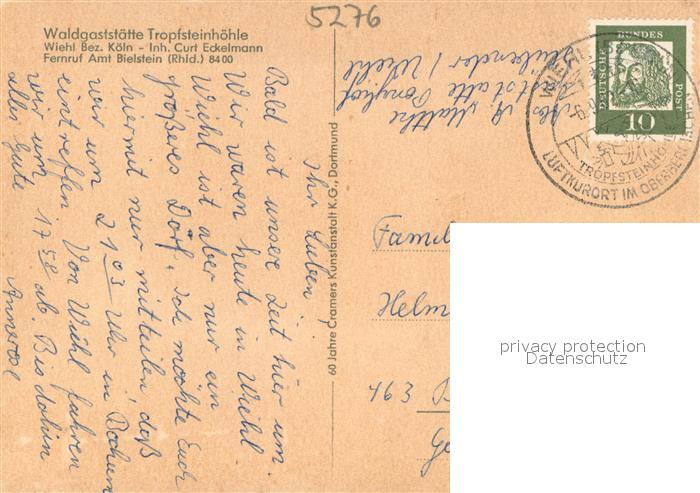 5276
Waldgaststätte Tropfsteinhöhle
Wiehl Bez. Köln - Inh. Curt Eckelmann
Fernruf Amt Bielstein (Rhld.) 8400
Ihr Lieben
Bald ist unsere Zeit hier um.
Wir waren heute in Wiehl
Wiehl ist aber nur ein
größeres Dorf. Ich möchte Euch
hiermit nur mitteilen, daß
wir um 21 03 Uhr in Bochum
eintreffen. Von Wiehl fahren
wir um 17 58 ab. Bis dahin
alles Gute
60 Jahre Cramers Kunstanstalt K.G., Dortmund
Abs. A. Matthe
alte
/ Wiehl
DEUTSCHE BUNDESPOST
10
WIEHL
TROPFSTEINHÖHLE
LUFTKURORT IM OBERBERG
Famil
Helm
463 B
privacy protection
Datenschutz